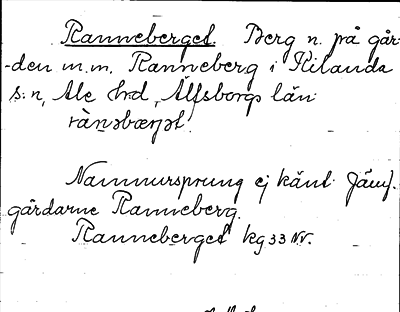 Ranneberget. Berg n. på går-
-den m.m. Ranneberg i Kilanda
s:n, Ale hd, Älfsborgs län.
Namnursprung ej känt. Jämf.
gårdarne Ranneberg.
Ranneberget kg 33 NV.